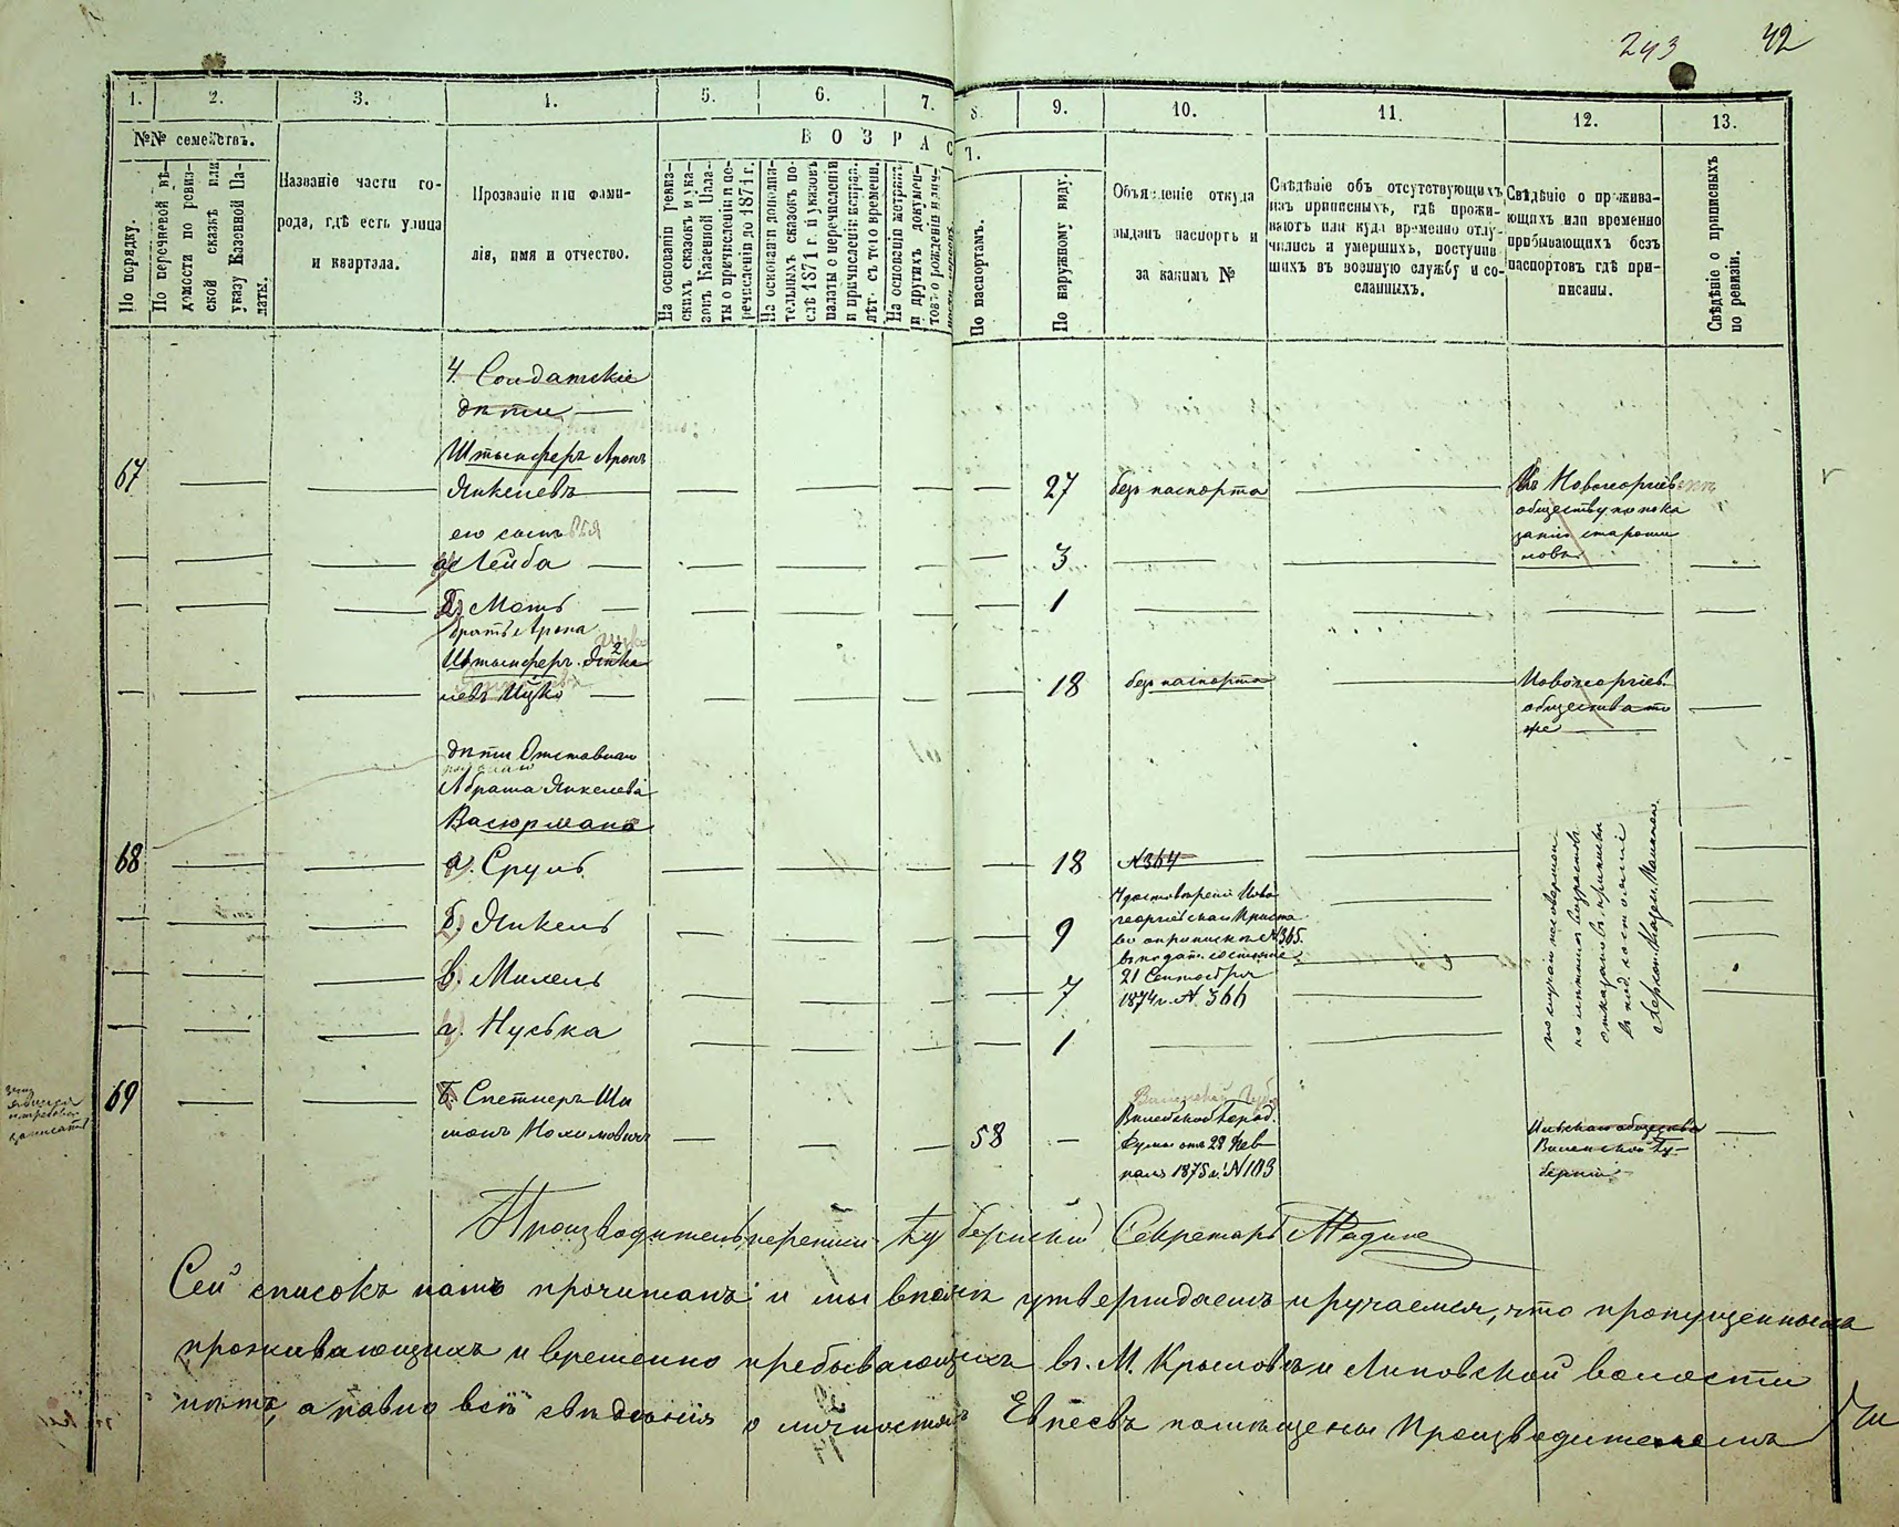 243 42
1. 2. 3. 4. 5. 6. 7. 8. 9. 10. 11. 12. 13.
№№ семействъ.
ВОЗРАСТ.
По порядку.
По перечневой вѣ-
домости по ревиз-
ской сказкѣ или
указу Казенной Па-
латы.
Названіе части го-
рода, гдѣ есть улица
и квартала.
Прозваніе или фами-
лія, имя и отчество.
На основаніи ревиз-
скихъ сказокъ и ука-
зовъ Казенной Пала-
ты о причисленіи и пе-
речисленіи до 1871 г.
На основаніи дополни-
тельныхъ сказокъ по-
слѣ 1871 г. и указовъ
палаты о перечисленіи
и причисленіи исправ.
лѣт. съ того времени.
На основаніи метрикъ
и другихъ докумен-
товъ о рожденіи
По паспортамъ.
По наружному виду.
Объясненіе откуда
выданъ паспортъ и
за какимъ №
Свѣдѣніе объ отсутствующихъ
изъ приписныхъ, гдѣ прожи-
ваютъ или куда временно отлу-
чились и умершихъ, поступив-
шихъ въ военную службу и со-
сланныхъ.
Свѣдѣніе о прожива-
ющихъ или временно
прибывающихъ безъ
паспортовъ гдѣ при-
писаны.
Свѣдѣніе о приписныхъ
по ревизіи.
4. Солдатскіе
дѣти
Штыкферъ Аронъ
67 Янкелевъ 27 безъ паспорта Къ Новогеоргіевск
обществу по пока
занію старожи
ловъ
его сыновья
а Лейба 3
б. Моть 1
братъ Арона
Штыкферъ Янке
левъ Ицко 18 безъ паспорта Новогеоргіев.
общества то
же
дѣти Отставнаго
Абрама Янкелева
Васюрмана
68 а. Сруль 18 №364
б. Янкель 9
Удостовѣреніе Ново
георгіевскаго
о припискѣ №365.
в податн. состояніе
21 Сентября
1874 г. №. 366
в. Михель 7
г. Нуська 1
69 5. Спетнеръ Ши
монъ Нохимовичъ 58
Вилейской Город.
Думы отъ 28 Фев
раля 1875 г. №103
Ильскаго общества
Виленской Гу-
берніи
Производитель переписи Губернскій Секретарь
Сей списокъ намъ прочитанъ и мы вполнѣ утверждаемъ и ручаемся, что пропущенныхъ
проживающихъ и временно пребывающихъ въ М. Крыловѣ и Липовской волости
нѣтъ, а равно всѣ свѣдѣнія о личностяхъ Евреевъ помѣщены Производителемъ